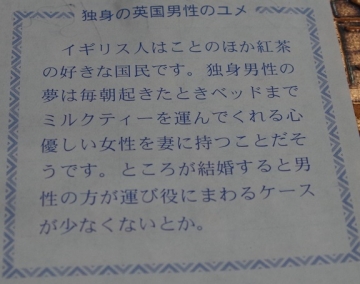 独身の英国男性のユメ
イギリス人はことのほか紅茶
の好きな国民です。独身男性の
夢は毎朝起きたときベッドまで
ミルクティーを運んでくれる心
優しい女性を妻に持つことだそ
うです。ところが結婚すると男
性の方が運び役にまわるケース
が少なくないとか。